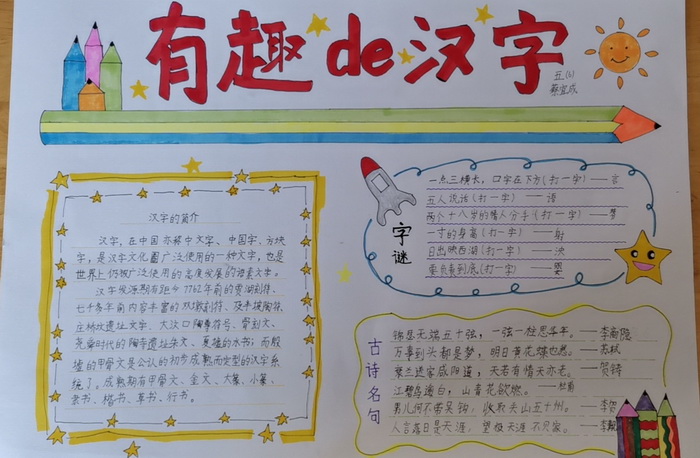 有趣de汉字
五(6)
蔡宜成
汉字的简介
汉字,在中国亦称中文字、中国字、方块
字,是汉字文化圈广泛使用的一种文字,也是
世界上仍被广泛使用的高度发展的语素文字。
汉字候源期有距今7762年前的贾湖刻符、
七千多年前内容丰富的双墩刻符、及半坡陶符、
庄桥坟遗址文字、大汶口陶尊符号、骨刻文、
尧舜时代的陶寺遗址朱文、夏墟的水书;而殷
墟的甲骨文是公认的初步成熟而定型的汉字系
统了。成熟期有甲骨文、金文、大篆、小篆、
隶书、楷书、草书、行书。
字谜
一点三横长,口字在下方(打一字)——言
五人说话(打一字)——语
两个十八岁的情人分手(打一字)——
一寸的身高(打一字)——射
日出映西湖(打一字)——
表里(打一字)——
古诗名句
锦瑟无端五十弦,一弦一柱思华年。——李商隐
万事到头都是梦,明日黄花蝶也愁。——苏轼
衰兰送客咸阳道,天若有情天亦老。——贺铸
江碧鸟逾白,山青花欲燃。——杜甫
男儿何不带吴钩,收取关山五十州。——李贺
人言落日是天涯,望极天涯不见家。——李觏